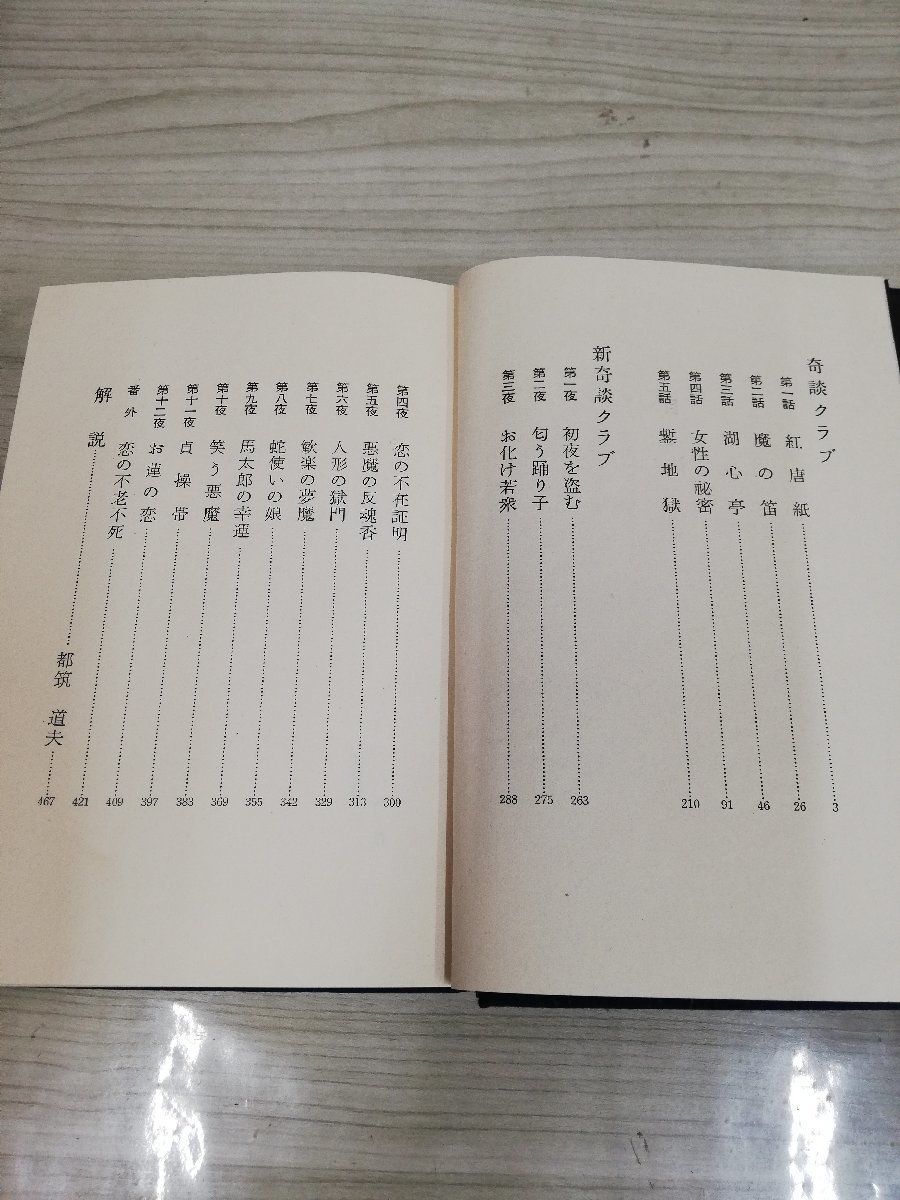 奇談クラブ
第一話 紅唐紙 3
第二話 魔の笛 26
第三話 湖心亭 46
第四話 女性の秘密 91
第五話 鏨地獄 210
新奇談クラブ
第一夜 初夜を盗む 263
第二夜 匂う踊り子 275
第三夜 お化け若衆 288
第四夜 恋の不在証明 300
第五夜 悪魔の反魂香 313
第六夜 人形の獄門 329
第七夜 歓楽の夢魔 342
第八夜 蛇使いの娘 355
第九夜 馬太郎の幸運 369
第十夜 笑う悪魔 383
第十一夜 貞操帯 397
第十二夜 お蓮の恋 409
番外 恋の不老不死 421
解説 都筑 道夫 467